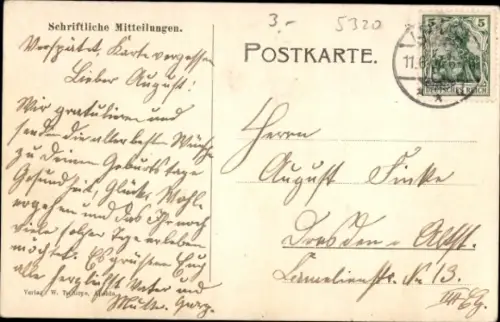 Schriftliche Mitteilungen.
3.-
5320
Verspätet, Karte vergessen
Lieber August!
Wir gratulieren und
senden die allerbesten Wünsche
zu deinem Geburtstage
Gesundheit, Glück, Wohl
ergehen und das Ihr noch
viele solcher Tage erleben
möchtet. Es grüßen Euch
alle herzlichst Vater und
Mutter.
Verlag: W.
POSTKARTE.
5
5
DEUTSCHES REICH
11.6.
Herrn
August Finke
Dresden - Altst.
Camelienstr. No 13.
III Etg.